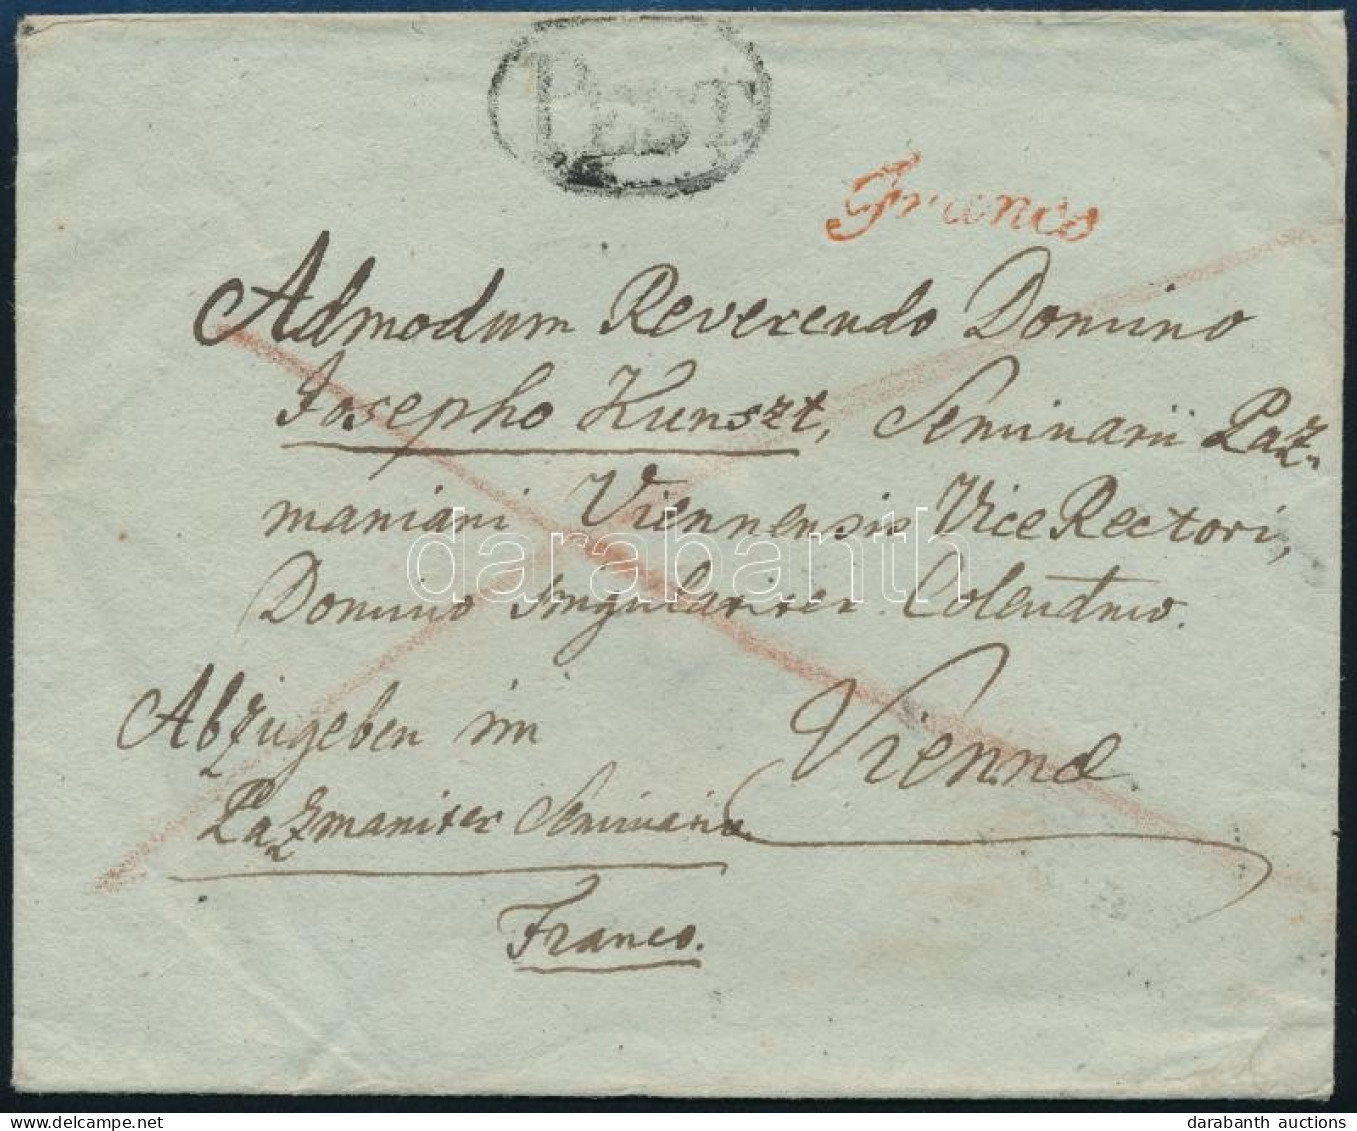 PEST
Franco
Admodum Reverendo Domino
Josepho Kunszt, Seminarii Paz-
maniani Viennensis ViceRectori,
Domino Singulariter Colendmo.
Abzugeben im
Viennæ
Pazmaniter Seminario
Franco.
darabanth
darabanth auctions